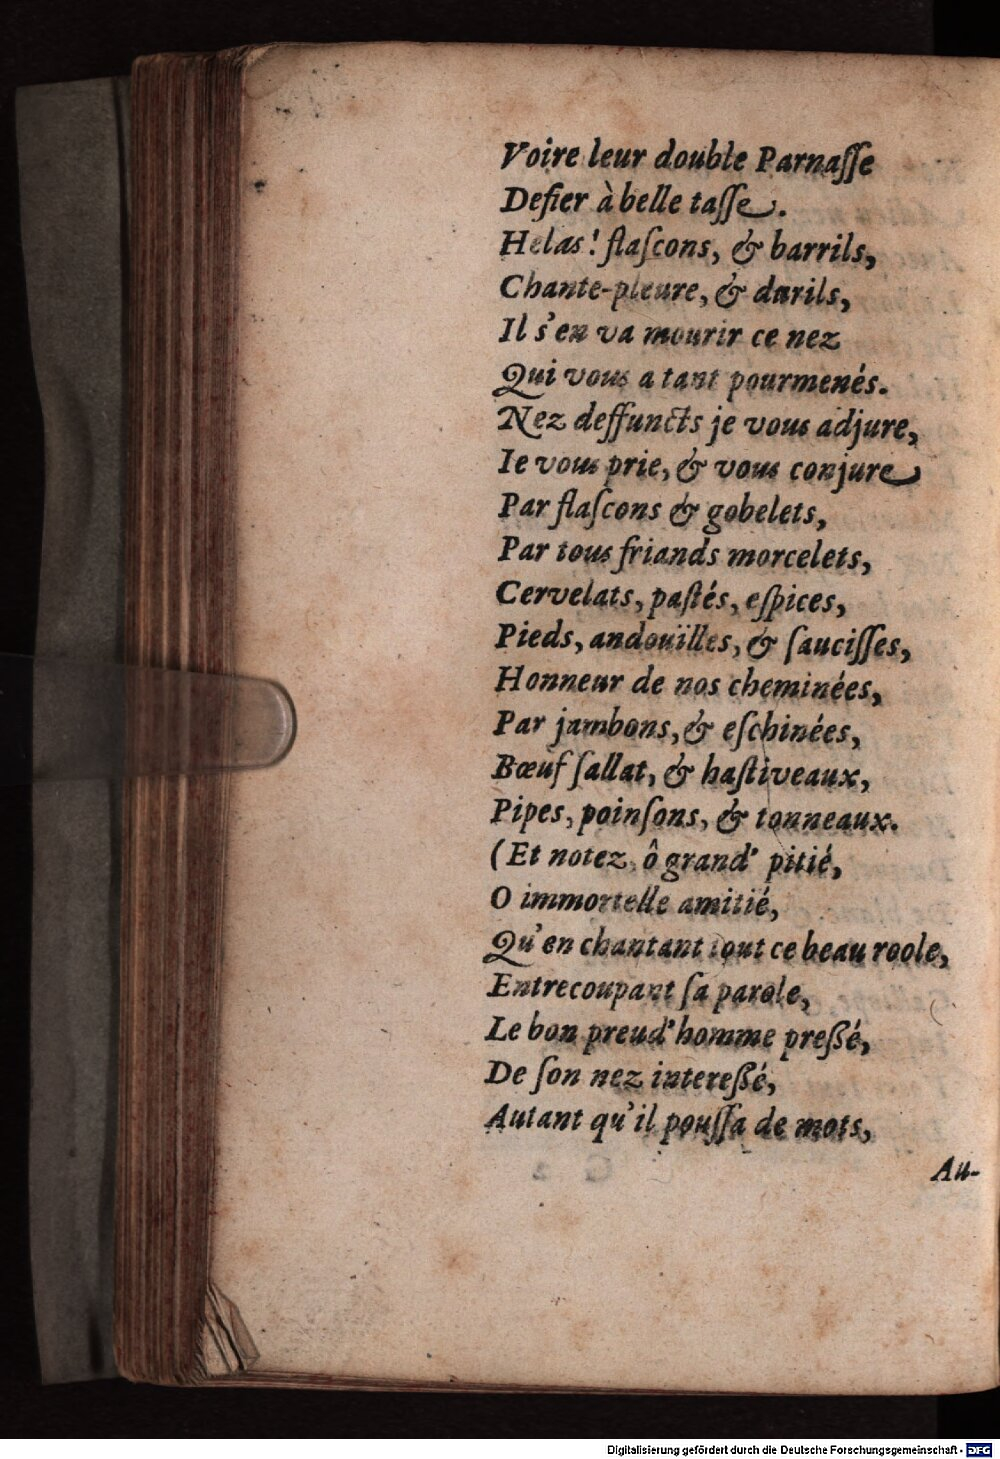 Voire leur double Parnaſſe
Defier à belle taſſe.
Helas! flaſcons, & barrils,
Chante-pleure, & durils,
Il s'en va mourir ce nez
Qui vous a tant pourmenés.
Nez deffuncts je vous adjure,
Ie vous prie, & vous conjure
Par flaſcons & gobelets,
Par tous friands morcelets,
Cervelats, paſtés, eſpices,
Pieds, andouïlles, & ſauciſſes,
Honneur de nos cheminées,
Par jambons, & eſchinées,
Bœuf ſallat, & haſtiveaux,
Pipes, poinſons, & tonneaux.
(Et notez, ô grand' pitié,
O immortelle amitié,
Qu'en chantant tout ce beau roole,
Entrecoupant ſa parole,
Le bon preud'homme preßé,
De ſon nez intereßé,
Autant qu'il pouſſa de mots,
Au-
Digitalisierung gefördert durch die Deutsche Forschungsgemeinschaft - DFG